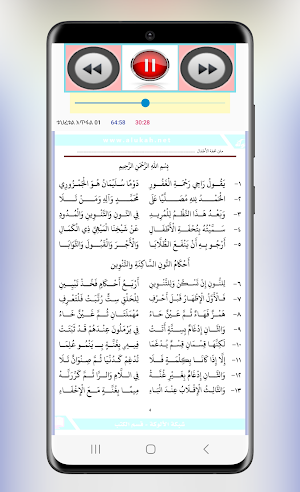 ቱህፈቱል አጥፋል 01 64:58 30:28
متن تحفة الأطفال
بِسْمِ اللهِ الرَّحْمٰنِ الرَّحِيْمِ
١- يَقُولُ رَاجِي رَحْمَةِ الْغَفُورِ دَوْمًا سُلَيْمَانُ هُوَ الْجَمْزُورِي
٢- الْحَمْدُ لِلَّهِ مُصَلِّيًا عَلَى مُحَمَّدٍ وَآلِهِ وَمَنْ تَلَا
٣- وَبَعْدُ هَذَا النَّظْمُ لِلْمُرِيدِ فِي النُّونِ وَالتَّنْوِينِ وَالْمُدُودِ
٤- سَمَّيْتُهُ بِتُحْفَةِ الْأَطْفَالِ عَنْ شَيْخِنَا الْمِيهِيِّ ذِي الْكَمَالِ
٥- أَرْجُو بِهِ أَنْ يَنْفَعَ الطُّلَّابَا وَالْأَجْرَ وَالْقَبُولَ وَالثَّوَابَا
أَحْكَامُ النُّونِ السَّاكِنَةِ وَالتَّنْوِينِ
٦- لِلنُّونِ إِنْ تَسْكُنْ وَلِلتَّنْوِينِ أَرْبَعُ أَحْكَامٍ فَخُذْ تَبْيِينِي
٧- فَالْأَوَّلُ الْإِظْهَارُ قَبْلَ أَحْرُفِ لِلْحَلْقِ سِتٌّ رُتِّبَتْ فَلْتَعْرِفِ
٨- هَمْزٌ فَهَاءٌ ثُمَّ عَيْنٌ حَاءُ مُهْمَلَتَانِ ثُمَّ غَيْنٌ خَاءُ
٩- وَالثَّانِ إِدْغَامٌ بِسِتَّةٍ أَتَتْ فِي يَرْمُلُونَ عِنْدَهُمْ قَدْ ثَبَتَتْ
١٠- لَكِنَّهَا قِسْمَانِ قِسْمٌ يُدْغَمَا فِيهِ بِغُنَّةٍ بِيَنْمُو عُلِمَا
١١- إِلَّا إِذَا كَانَا بِكِلْمَةٍ فَلَا تُدْغِمْ كَدُنْيَا ثُمَّ صِنْوَانٍ تَلَا
١٢- وَالثَّانِ إِدْغَامٌ بِغَيْرِ غُنَّهْ فِي اللَّامِ وَالرَّا ثُمَّ كَرِّرَنَّهْ
١٣- وَالثَّالِثُ الْإِقْلَابُ عِنْدَ الْبَاءِ مِيمًا بِغُنَّةٍ مَعَ الْإِخْفَاءِ